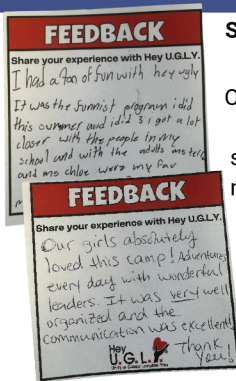 FEEDBACK
Share your experience with Hey U.G.L.Y.
I had a ton of fun with hey ugly
It was the funnist program i did
this summer and i did 3 i got a lot
closer with the people in my
school and with the adults
and ms chloe were my fav
FEEDBACK
Share your experience with Hey U.G.L.Y.
Our girls absolutely
loved this camp! Adventures
every day with wonderful
leaders. It was very well
organized and the
communication was excellent!
Thank
you!
Hey
U.G.L.Y.
Unique Gifted Lovable You
S
C
s